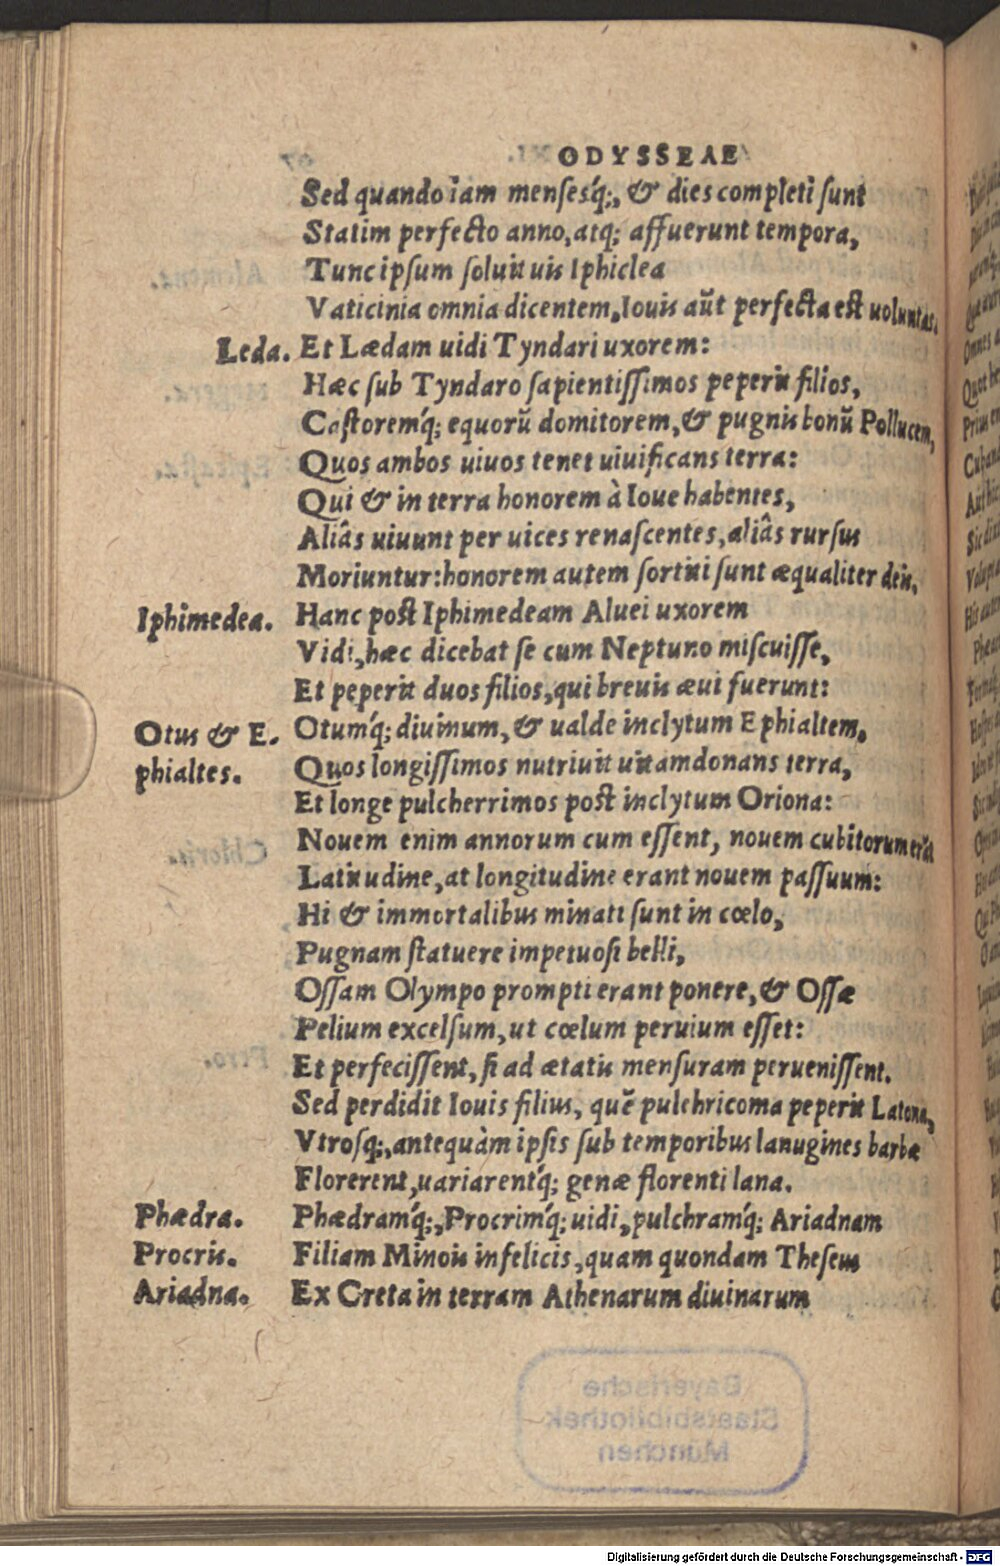 ODYSSEAE
Sed quando iam menses'q;, & dies completi sunt
Statim perfecto anno, atq; affuerunt tempora,
Tunc ipsum soluit uis Iphiclea
Vaticinia omnia dicentem, Iouis aūt perfecta est uoluntas.
Leda. Et Lædam uidi Tyndari uxorem:
Hæc sub Tyndaro sapientissimos peperit filios,
Castorem'q; equorū domitorem, & pugnis bonū Pollucem,
Quos ambos uiuos tenet uiuificans terra:
Qui & in terra honorem à Ioue habentes,
Aliâs uiuunt per uices renascentes, aliâs rursus
Moriuntur: honorem autem sortiti sunt æqualiter deis.
Iphimedea. Hanc post Iphimedeam Aluei uxorem
Vidi, hæc dicebat se cum Neptuno miscuisse,
Et peperit duos filios, qui breuis æui fuerunt:
Otus & E. Otum'q; diuinum, & ualde inclytum Ephialtem,
phialtes. Quos longissimos nutriuit uitam donans terra,
Et longe pulcherrimos post inclytum Oriona:
Nouem enim annorum cum essent, nouem cubitorum erāt
Latitudine, at longitudine erant nouem passuum:
Hi & immortalibus minati sunt in cœlo,
Pugnam statuere impetuosi belli,
Ossam Olympo prompti erant ponere, & Ossæ
Pelium excelsum, ut cœlum peruium esset:
Et perfecissent, si ad ætatis mensuram peruenissent.
Sed perdidit Iouis filius, quē pulchricoma peperit Latona,
Vtrosq;, antequàm ipsis sub temporibus lanugines barbæ
Florerent, uariarent'q; genæ florenti lana.
Phædra. Phædram'q;, Procrim'q; uidi, pulchram'q; Ariadnam
Procris. Filiam Minois infelicis, quam quondam Theseus
Ariadna. Ex Creta in terram Athenarum diuinarum
Bayerische
Staatsbibliothek
München
Digitalisierung gefördert durch die Deutsche Forschungsgemeinschaft - DFG